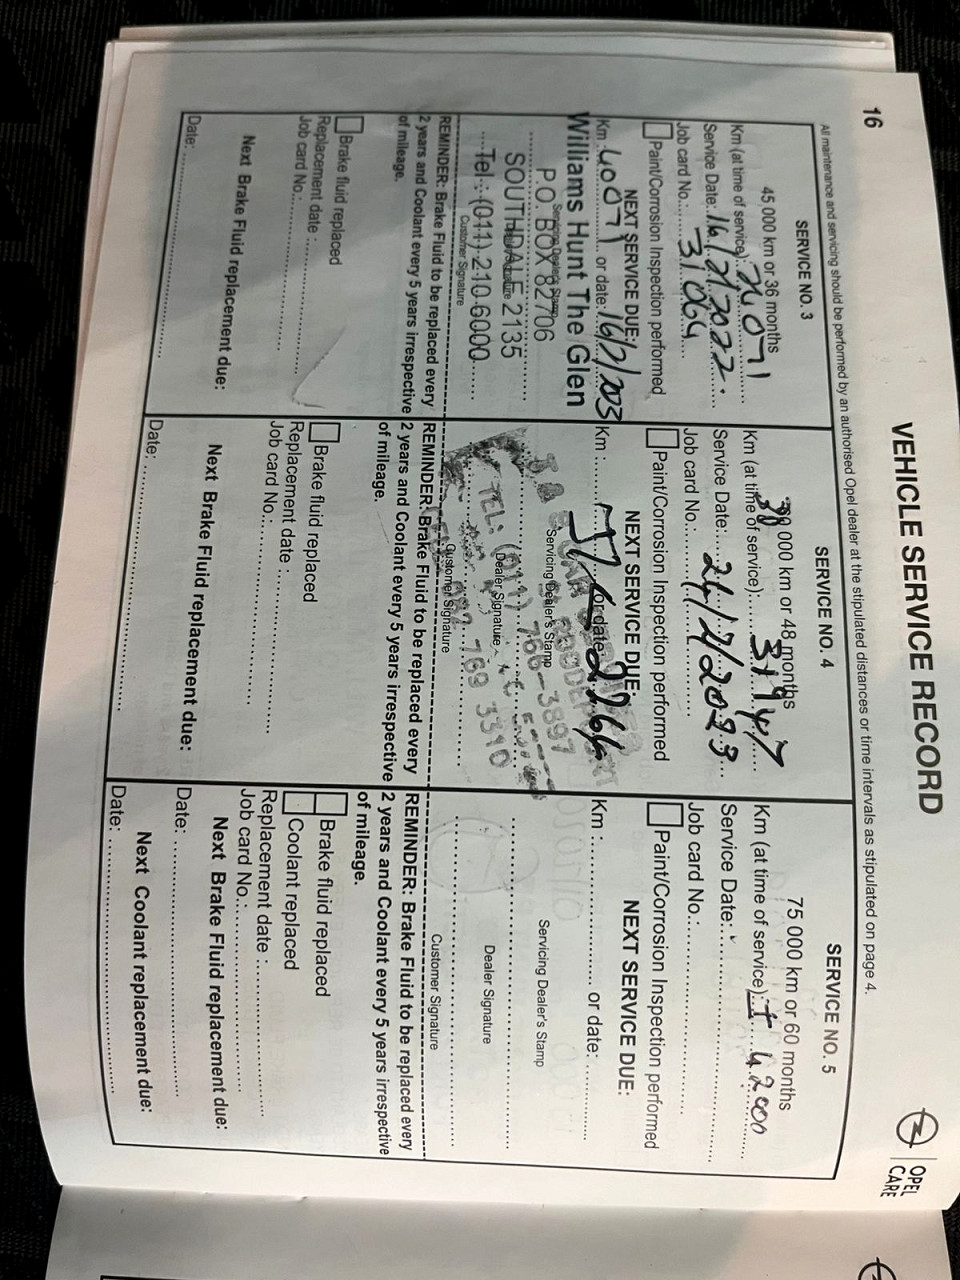 16
VEHICLE SERVICE RECORD
OPEL
CARE
All maintenance and servicing should be performed by an authorised Opel dealer at the stipulated distances or time intervals as stipulated on page 4.
SERVICE NO. 3
45 000 km or 36 months
Km (at time of service):
Service Date: 16/2/2022
Job card No.: 31064
Paint/Corrosion Inspection performed
NEXT SERVICE DUE:
Km 40071 or date: 16/2/2023
Williams Hunt The Glen
Servicing Dealer's Stamp
P.O BOX 82706
SOUTHDALE 2135
Tel : (011) 210-6000
Customer Signature
REMINDER: Brake Fluid to be replaced every
2 years and Coolant every 5 years irrespective
of mileage.
Brake fluid replaced
Replacement date :
Job card No.:
Next Brake Fluid replacement due:
Date:
SERVICE NO. 4
000 km or 48 months
Km (at time of service)
Service Date: 2023
Job card No.:
Paint/Corrosion Inspection performed
NEXT SERVICE DUE:
Km : or date:
Servicing Dealer's Stamp
TEL: (011) 766-3897
Dealer Signature
769 3310
Customer Signature
REMINDER: Brake Fluid to be replaced every
2 years and Coolant every 5 years irrespective
of mileage.
Brake fluid replaced
Replacement date :
Job card No.:
Next Brake Fluid replacement due:
Date:
SERVICE NO. 5
75 000 km or 60 months
Km (at time of service): 42000
Service Date:
Job card No.:
Paint/Corrosion Inspection performed
NEXT SERVICE DUE:
Km : or date:
Servicing Dealer's Stamp
Dealer Signature
Customer Signature
REMINDER: Brake Fluid to be replaced every
2 years and Coolant every 5 years irrespective
of mileage.
Brake fluid replaced
Coolant replaced
Replacement date :
Job card No.:
Next Brake Fluid replacement due:
Date:
Next Coolant replacement due:
Date: